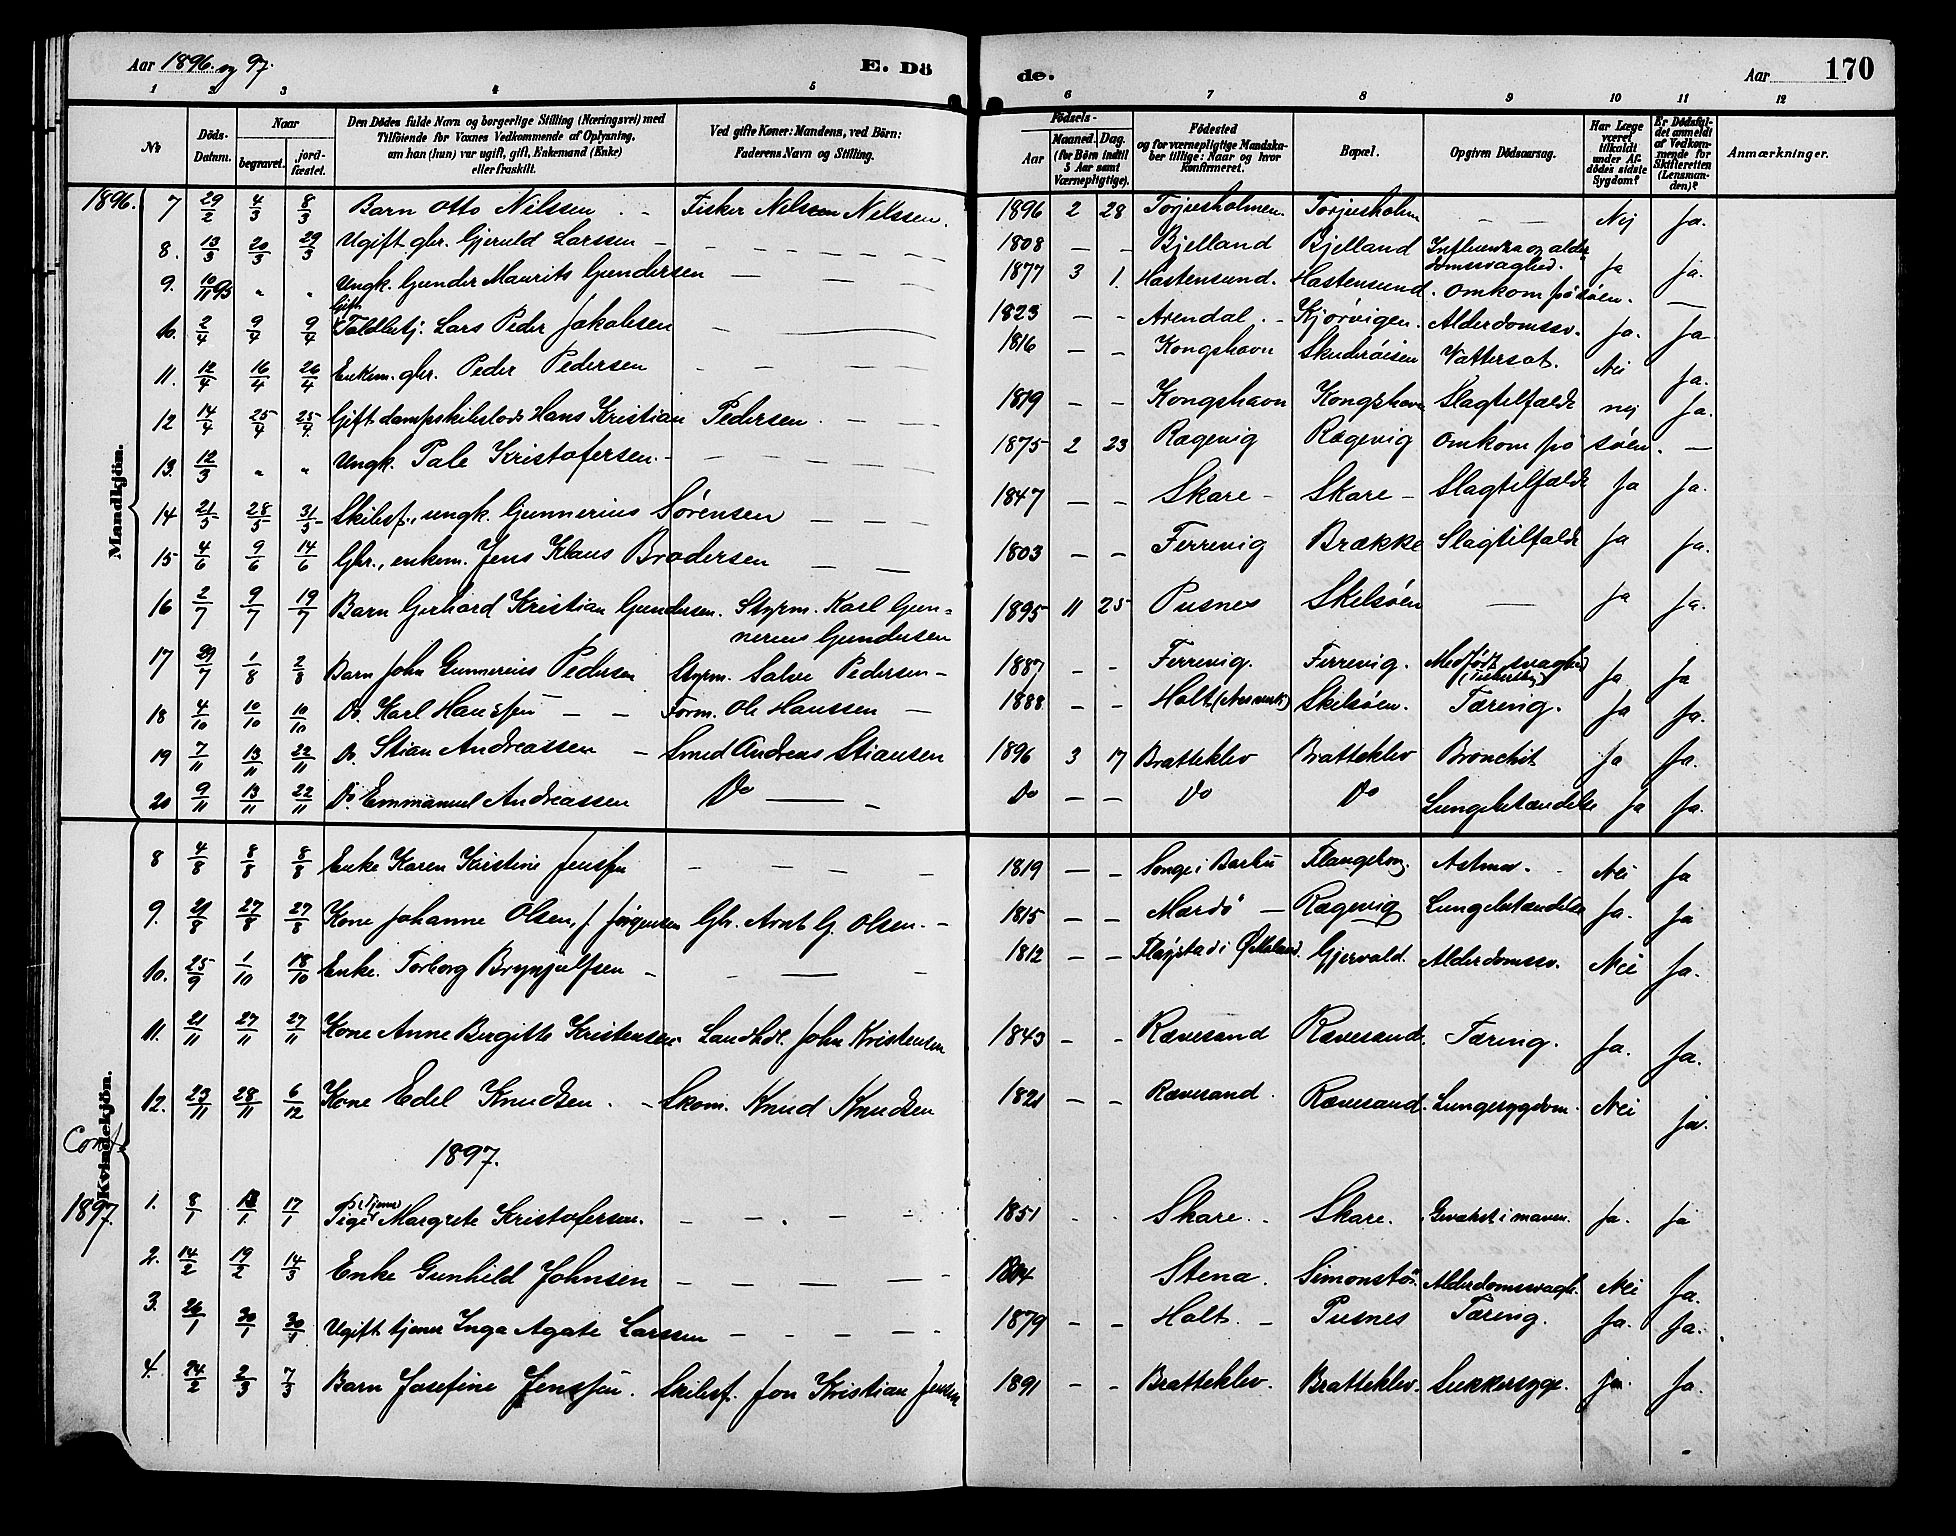 Aar 1896. og 97. E. Dö de. Aar 170
1 2 3 4 5 6 7 8 9 10 11 12
No Döds-Datum. Naar begravet. jord-fæstet. Den Dödes fulde Navn og borgerlige Stilling (Næringsvei) med Tilföiende for Voxnes Vedkommende af Oplysning, om han (hun) var ugift, gift, Enkemand (Enke) eller fraskilt. Ved gifte Koner: Mandens, ved Börn: Faderens Navn og Stilling. Födsels- Aar Maaned. Dag. (for Börn indtil 5 Aar samt Værnepligtige). Födested og for værnepligtige Mandskaber tillige: Naar og hvor Konfirmeret. Bopæl. Opgiven Dödsaarsag. Har Læge været tilkaldt under Afdödes sidste Sygdom? Er Dödsfaldet anmeldt af Vedkommende for Skifteretten (Lensmanden)? Anmærkninger.
Mandkjön.
1896. 7 29/2 4/3 8/3 Barn Otto Nilssen - Fisker Nilsen Nilssen. 1896 2 28 Torjusholmen. Torjusholm — — Nej Ja.
8. 13/3 20/3 29/3 Ugift gbr. Gjeruld Larssen - 1808 — - Bjelland Bjelland Influenza og alderdomssvaghed. Ja Ja.
9. 10/11 95 " " Ungk. Gunder Maurits Gundersen — — 1877 3 1. Hastensund. Hastensund. Omkom på søen. —
10. 2/4 9/4 9/4 Gift Toldbetj. Lars Peder Jakobsen - — 1823 - - Arendal. - Kjørvigen. Alderdomssv. Ja. Ja
11. 12/4 16/4 26/4 Enkem. gbr. Peder Pedersen - - - 1816 — - Kongshavn Vattersot. Nei Ja.
12 14/4 25/4 25/4. Gift dampskibslods Hans Kristian Pedersen. — 1819 - - Kongshavn Kongshavn Slagtilfælde nej Ja.
13. 12/3 " " Ungk. Tale Kristofersen. - 1875 2 23 Rægevig Rægevig Omkom på søen. —
14 21/5 28/5 31/5 Skibsf., ungk. Gunnerius Sørensen — - - 1847 — - Skare - Skare - Slagtilfælde Ja Ja.
15 4/6 9/6 14/6 Gbr., enkem. Jens Klaus Brodersen — — 1803 — - Ferrevig Brække Slagtilfælde Ja Ja.
16 2/7 9/7 19/7 Barn Gerhard Kristian Gundersen. Styrm. Karl Gunnerius Gundersen 1895 11 25 Pusnes Skelsøen — Ja Ja.
17 29/7 1/8 2/8 Barn John Gunnerius Pedersen Styrm. Salve Pedersen - 1887 - - Ferrevig. Ferrevig. Medfødt svaghed Ja Ja
18 4/10 10/10 10/10 Do. Karl Hanssen — - Form. Ole Hanssen — 1888 - - Holt Skelsøen. Tæring. Ja Ja.
19 7/11 13/11 22/11 Do. Stian Andreassen - Smed Andreas Stiansen 1896 3 17 Bratteklev Bratteklev Bronchit Ja Ja.
20 9/11 13/11 22/11 Do. Emmanuel Andreassen Do — - Do - — Do Do Lungebetændelse Ja Ja.
Kvindekjön.
8 4/8 8/8 8/8 Enke Karen Kristine Jenssen - — — — 1819 — - Songe i Barbu Astma. Nei Ja
9. 21/8 27/8 27/8 Kone Johanne Olsen, f. Jørgensen Gbr. Arnt G. Olsen. - 1815 - - Mærdö — Rægevig Lungebetændelse Ja. Ja
10. 25/9 1/10 18/10 Enke. Torborg Brynjulfsen - - — - 1812 - - Fløystad i Gjervold. Alderdomssv. Nei Ja.
11. 21/11 27/11 27/11 Kone Anne Birgitte Kristensen Landhdl. John Kristensen 1843 - - Rævesand Rævesand. Tæring. Ja. Ja.
12. 23/11 28/11 6/12 Kone Edel Knudsen. - Skom. Knud Knudsen 1821 — — Rævesand. Rævesand. Lungesygdom. Nei Ja.
1897.
Conf.
1897. 1. 8/1 13/1. 17/1 Pige Margrete Kristofersen. - - . - - 1851 Skare. . Skare. Gevækst i maven. Ja. Ja
2. 14/2 19/2 14/3 Enke Gunhild Johnsen — — — — 1804 Stena. Simonstö. Alderdomssvagh. Nei Ja.
3. 26/1 30/1 30/1 Ugift tjener Inga Agate Larssen — - — - 1879 - - Holt. - Pusnes Tæring. Ja. Ja.
4. 24/2 2/3 7/3 Barn Josefine Jenssen. Skibsf. Jon Kristian Jensen 1891 - - Bratteklev. Bratteklev. Sukkersyge. Ja. Ja.